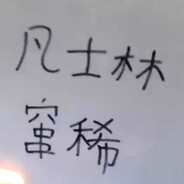 凡士林
窜稀